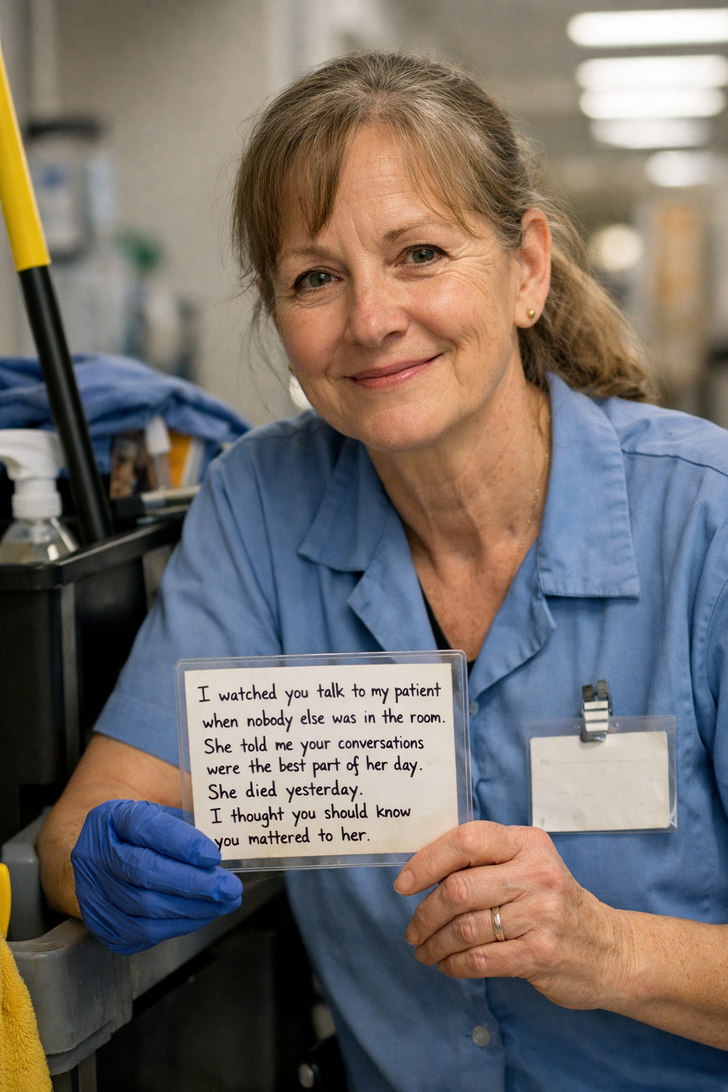 I watched you talk to my patient
when nobody else was in the room.
She told me your conversations
were the best part of her day.
She died yesterday.
I thought you should know
you mattered to her.